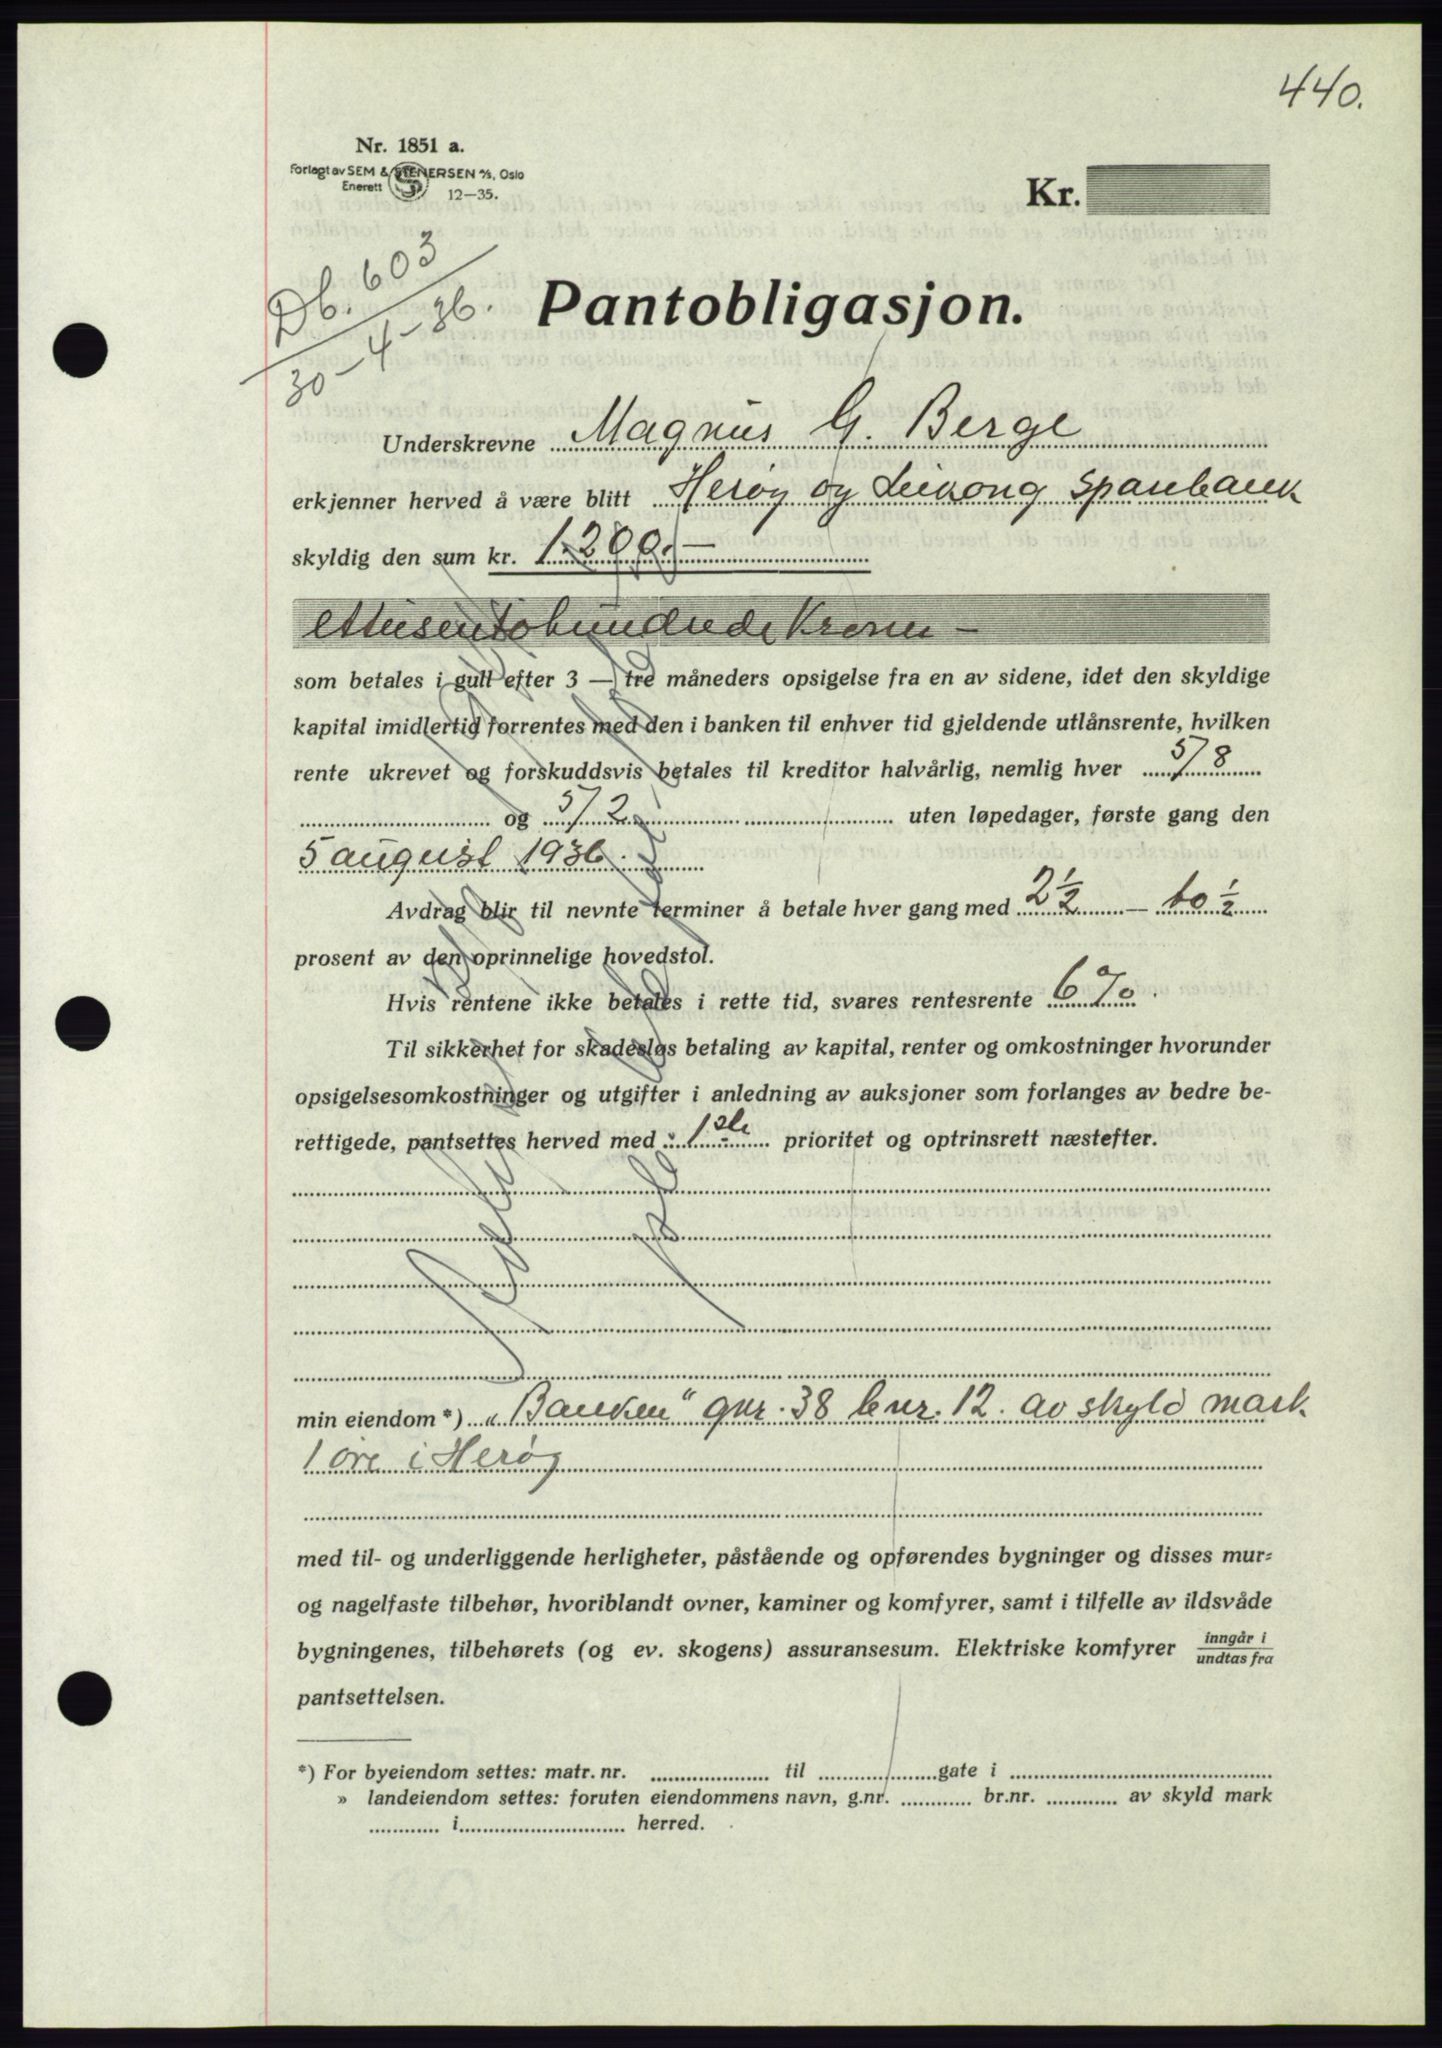 440.
Nr. 1851 a.
Forlagt av SEM & STENERSEN A/S, Oslo
Enerett 12—35.
Kr.
Db. 603
30-4-36.
Pantobligasjon.
Underskrevne Magnus G. Berge
erkjenner herved å være blitt Herøy og Leikong Sparebank
skyldig den sum kr. 1.200.—
ettusentohundrede kroner —
som betales i gull efter 3 — tre måneders opsigelse fra en av sidene, idet den skyldige
kapital imidlertid forrentes med den i banken til enhver tid gjeldende utlånsrente, hvilken
rente ukrevet og forskuddsvis betales til kreditor halvårlig, nemlig hver 5/8
og 5/2 uten løpedager, første gang den
5 august 1936.
Avdrag blir til nevnte terminer å betale hver gang med 2½ — to ½
prosent av den oprinnelige hovedstol.
Hvis rentene ikke betales i rette tid, svares rentesrente 6%.
Til sikkerhet for skadesløs betaling av kapital, renter og omkostninger hvorunder
opsigelsesomkostninger og utgifter i anledning av auksjoner som forlanges av bedre be-
rettigede, pantsettes herved med 1ste prioritet og optrinsrett næstefter.
min eiendom *) „Banken" gnr. 38 bnr. 12. av skyld mark
1 øre i Herøy
med til- og underliggende herligheter, påstående og opførendes bygninger og disses mur-
og nagelfaste tilbehør, hvoriblandt ovner, kaminer og komfyrer, samt i tilfelle av ildsvåde
bygningenes, tilbehørets (og ev. skogens) assuransesum. Elektriske komfyrer inngår i / undtas fra
pantsettelsen.
*) For byeiendom settes: matr. nr. til gate i
» landeiendom settes: foruten eiendommens navn, g.nr. br.nr. av skyld mark
i herred.